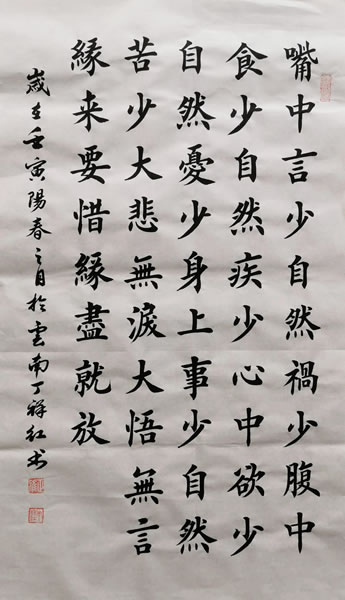 嘴中言少自然禍少腹中
食少自然疾少心中欲少
自然憂少身上事少自然
苦少大悲無淚大悟無言
緣来要惜緣盡就放
歲在壬寅陽春之月於雲南丁祥红书